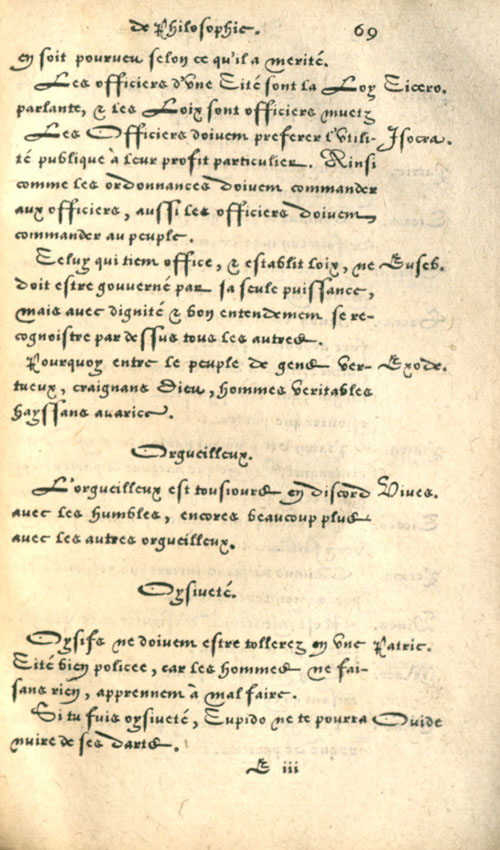 de Philosophie. 69
en soit pourveu selon ce qu'il a merité.
Les officiers d'vne Cité sont la Loy Cicero.
parlante, & les Loix sont officiers muetz
Les Officiers doivent preferer l'vtili- Isocra.
té publique à leur profit particulier. Ainsi
comme les ordonnances doivent commander
aux officiers, aussi les officiers doivent
commander au peuple.
Celuy qui tient office, & establit loix, ne Euseb.
doit estre gouverné par sa seule puissance,
mais avec dignité & bon entendement se re-
cognoistre par dessus tous les autres.
Pourquoy entre le peuple de gens ver- Exode.
tueux, craignans Dieu, hommes veritables
hayssans avarice.
Orgueilleux.
L'orgueilleux est tousiours en discord Vives.
avec les humbles, encores beaucoup plus
avec les autres orgueilleux.
Oysiveté.
Oysifs ne doivent estre tollerez en vne Patric.
Cité bien policee, car les hommes ne fai-
sans rien, apprennent à mal faire.
Si tu fuis oysiveté, Cupido ne te pourra Ovide
nuire de ses darts.
E iii